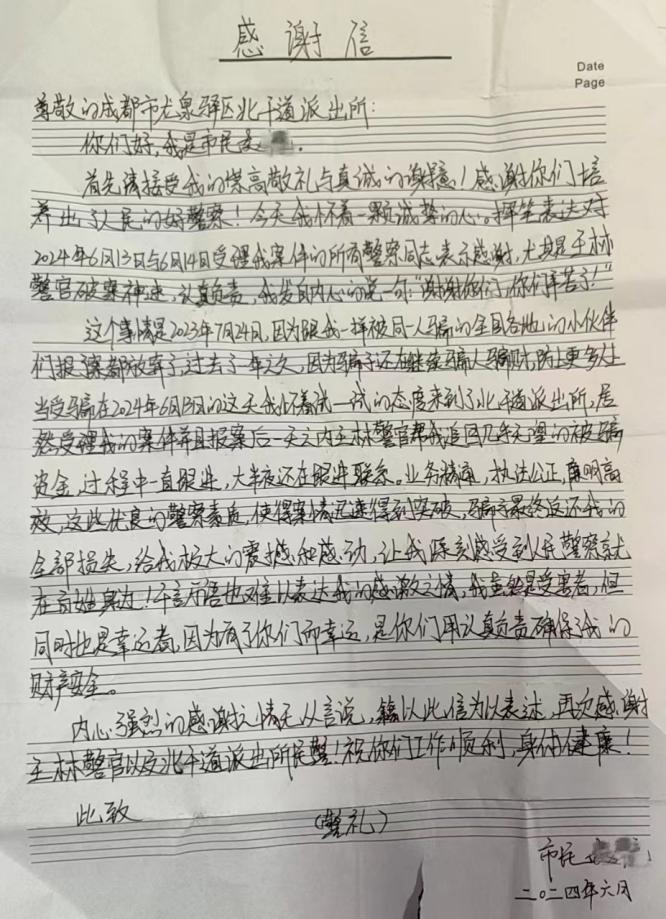 感谢信
Date
Page
尊敬的成都市龙泉驿区北干道派出所：
你们好，我是市民
首先请接受我的崇高敬礼与真诚的谢意！感谢你们培
养出了人民的好警察！今天我怀着一颗诚挚的心。挥笔表达对
2024年6月13日与6月14日受理我案件的所有警察同志表示感谢，尤其是王林
警官破案神速，认真负责，我发自内心的说一句："谢谢你们，你们辛苦了！"
这个事情是2023年7月24日，因为跟我一样被同一人骗的全国各地的小伙伴
们报了案都放弃了，过去了一年之久，因为骗子还在继续骗人骗财，防止更多人上
当受骗在2024年6月13日的这天我怀着试一试的态度来到了北干道派出所，居
然受理我的案件并且报案后一天之内王林警官帮我追回几乎无望的被骗
资金，过程中一直跟进，大半夜还在跟进联系。业务精通，执法公正，廉明高
效，这些优良的警察素质，使得案情迅速得到突破，骗子最终返还我的
全部损失，给我极大的震撼和感动，让我深刻感受到人民警察就
在百姓身边！千言万语也难以表达我的感激之情，我虽然是受害者，但
同时也是幸运者，因为有了你们而幸运，是你们用认真负责确保了我的
财产安全。
内心强烈的感谢之情无以言说，籍以此信为以表述，再次感谢
王林警官以及北干道派出所民警！祝你们工作顺利，身体健康！
此致
（敬礼）
市民
二〇二四年六月